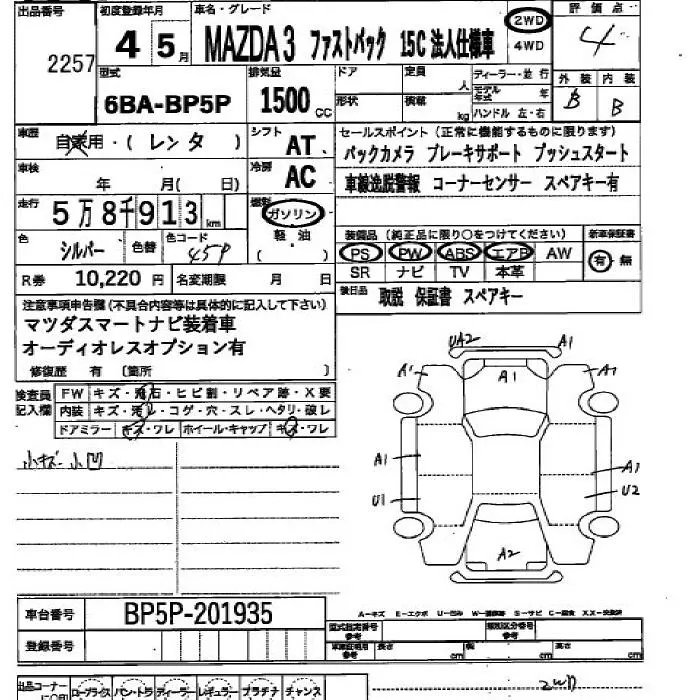 出品番号 初度登録年月 車名・グレード 2WD 評価点
2257 4 5月 MAZDA3 ファストバック 15C 法人仕様車 4WD 4
型式 排気量 ドア 定員 人 ディーラー・並行 外装 内装
6BA-BP5P 1500 CC 形状 積載 kg モデル年式 年 B B
ハンドル 左・右
車歴 自家用・(レンタ) シフト AT セールスポイント(正常に機能するものに限ります)
車検 年 月(日) 冷房 AC バックカメラ ブレーキサポート プッシュスタート
車線逸脱警報 コーナーセンサー スペアキー有
走行 5万8千913km 燃料 ガソリン
軽油
( )
装備品(純正品に限り○をつけてください) 新車保証書
色 シルバー 色替 色コード 45P PS PW ABS エアB AW 有 無
SR ナビ TV 本革
R券 10,220円 名変期限 月 日
後日品 取説 保証書 スペアキー
注意事項申告欄(不具合内容等は具体的に記入して下さい)
マツダスマートナビ装着車
オーディオレスオプション有
修復歴 有 〔箇所 〕
検査員記入欄 FW キズ・飛石・ヒビ割・リペア跡・X要
内装 キズ・汚レ・コゲ・穴・スレ・ヘタリ・破レ
ドアミラー キズ・ワレ ホイール・キャップ キズ・ワレ
小キズ・小凹
UA2 A1
A1 A1 A1
A1 A1
U1 U2
A2
車台番号 BP5P-201935
A=キズ E=エクボ U=凹ミ W=補修跡 S=サビ C=腐食 XX=交換済
登録番号 型式指定番号 参考 類別区分番号 参考
車庫証明用 参考 長さ cm 幅 cm 高さ cm
出品コーナー ロープライス バントラ ディーラー レギュラー プラチナ チャンス
に○印 2WD